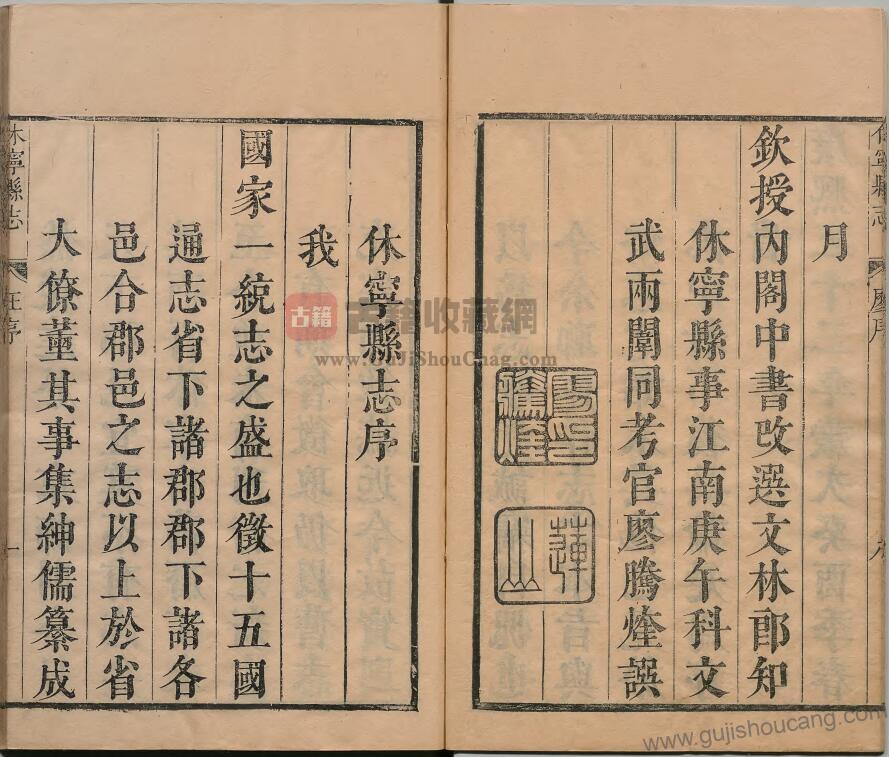 休寧縣志
廖序
月
欽授內閣中書改選文林郎知
休寧縣事江南庚午科文
武兩闈同考官廖騰煃譔
蓮山
休寧縣志序
我
國家一統志之盛也徵十五國
通志省下諸郡郡下諸各
邑合郡邑之志以上於省
大僚董其事集紳儒纂成
休寧縣志
汪序
一
古籍
古籍收藏網
www.GuJiShouCang.com
www.gujishoucang.com